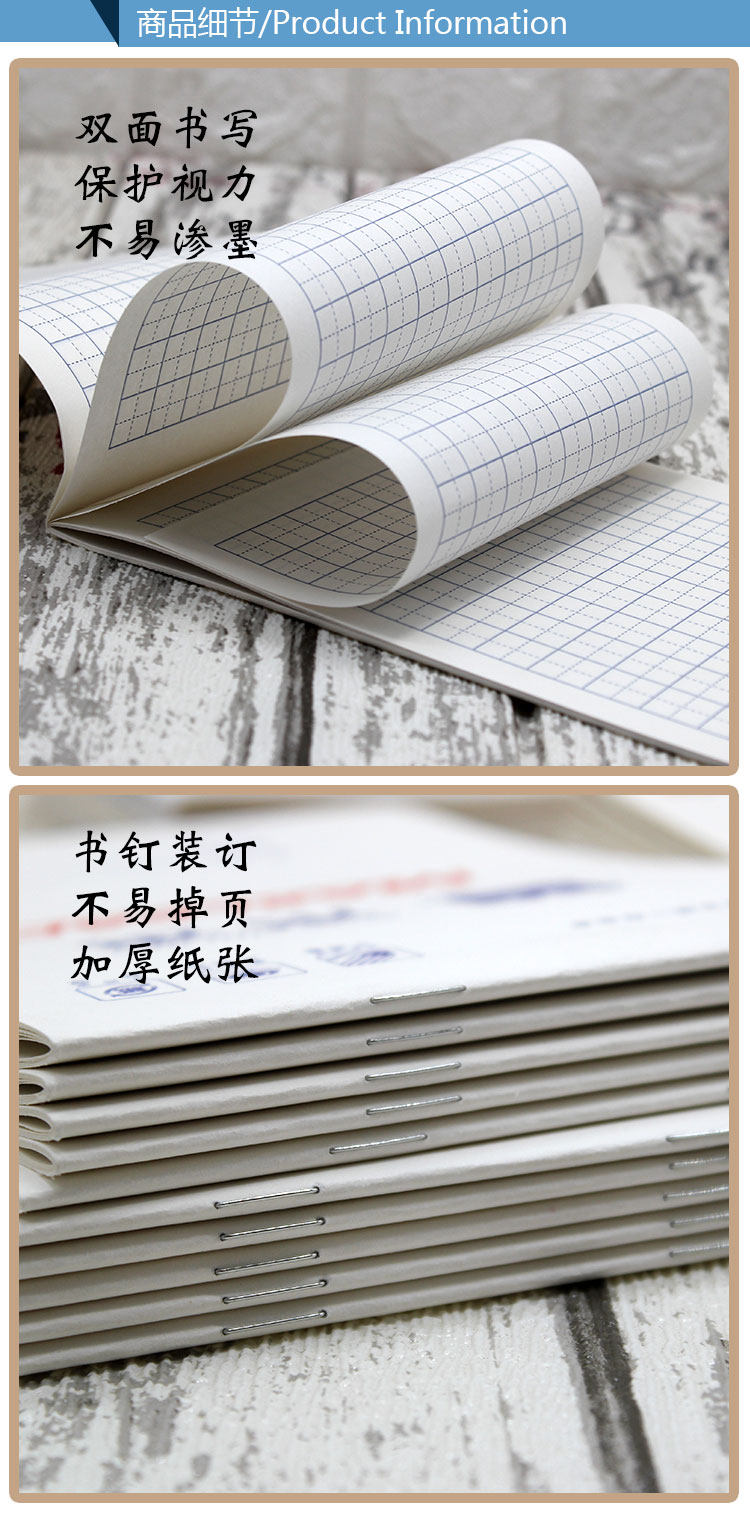 商品细节/Product Information
双面书写
保护视力
不易渗墨
书钉装订
不易掉页
加厚纸张